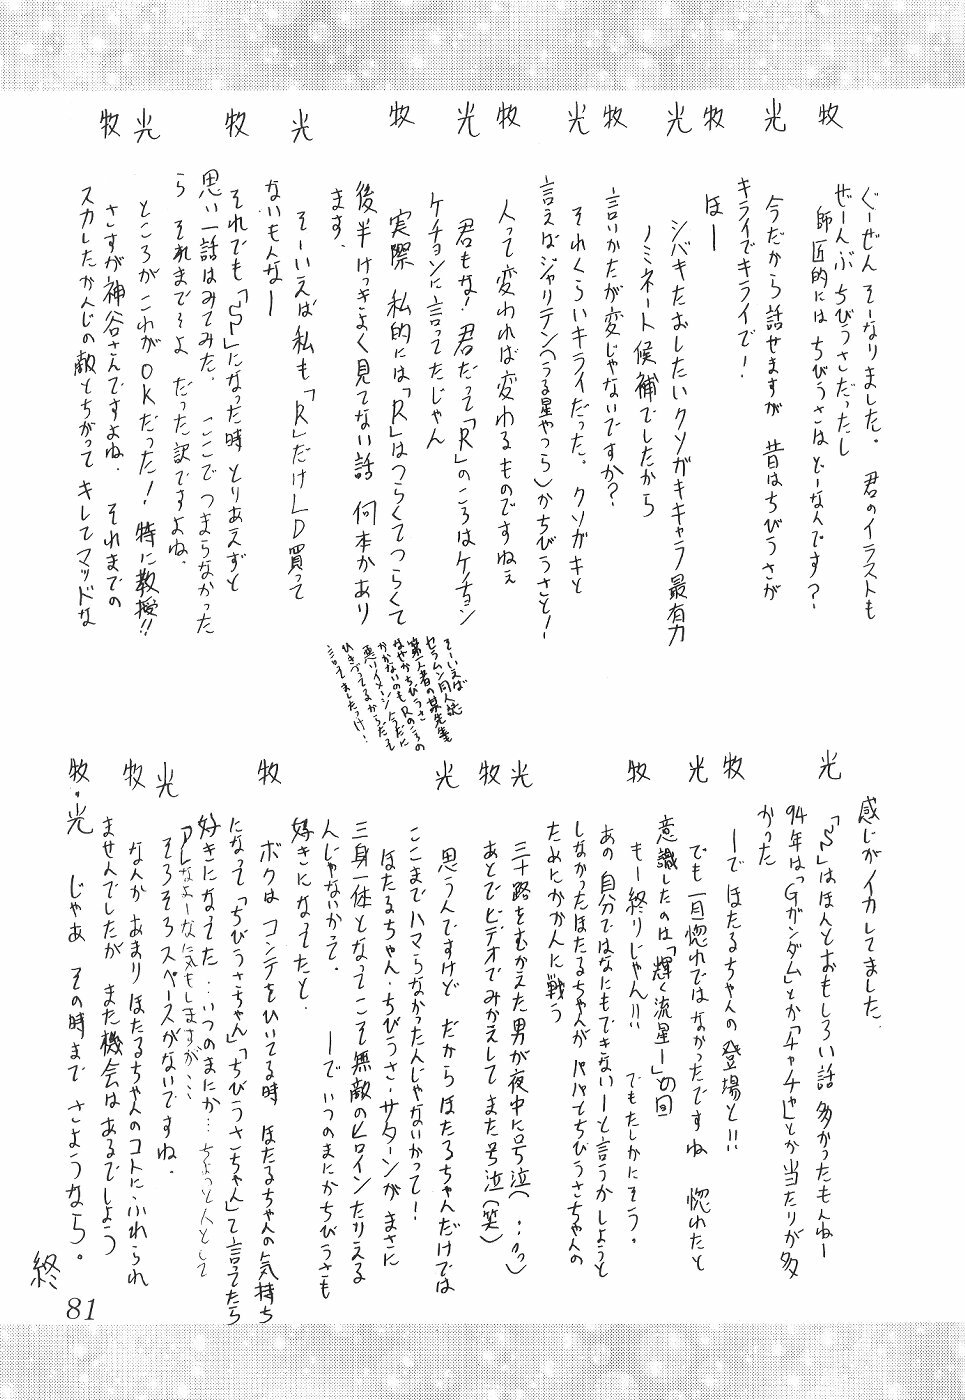 牧 ぐーぜんそーなりました。 君のイラストも
ぜーんぶちびうさだったし
師匠的にはちびうさはどーなんです?
光 今だから話せますが 昔はちびうさが
キライでキライで!
牧 ほー
光 シバキたおしたいクソガキキャラ最有力
ノミネート候補でしたから
牧 言いかたが変じゃないですか?
光 それくらいキライだった。クソガキと
言えばジャリテン(うる星やつら)かちびうさと!
牧 人って変われば変わるものですねぇ
光 君もな!君だって「R」のころはケチョン
ケチョンに言ってたじゃん
牧 実際 私的には「R」はつらくてつらくて
後半けっきょく見てない話 何本かあり
ます。
光 そーいえば私も「R」だけLD買って
ないもんなー
牧 それでも「S」になった時とりあえずと
思い一話はみてみた。 ここでつまらなかった
ら それまでそよ だった訳ですよね、
光 ところがこれがOKだった! 特に教授!!
牧 さすが神谷さんですよね、 それまでの
スカしたかんじの敵とちがってキレてマッドな
そーいえば
セラムン同人誌
第一人者の某先生も
なぜかちびうさ
かかないのもRのころの
悪いイメージ 今だに
ひきずってるからだと
言ってましたっけ!
感じがイカしてました。
光 「S」はほんとおもしろい話 多かったもんねー
94年は「Gガンダム」とか「チャチャ」とか当たりが多
かった
牧 ーで ほたるちゃんの登場と!!
光 でも一目惚れではなかったですね 惚れたと
意識したのは「輝く流星ー」の回
牧 もー終りじゃん!! でもたしかにそう。
あの 自分ではなにもできないーと言うかしようと
しなかったほたるちゃんが パパとちびうさちゃんの
ためにかかんに戦う
光 三十路をむかえた男が夜中に号泣(…っっ)
牧 あとでビデオでみかえして また号泣(笑)
光 思うんですけど だからほたるちゃんだけでは
ここまでハマらなかったんじゃないかって!
ほたるちゃん・ちびうさ・サターンがまさに
三身一体となってこそ無敵のヒロインたりえる
んじゃないかって。 ーで いつのまにかちびうさも
好きになってたと
牧 ボクは コンテをひいてる時 ほたるちゃんの気持ち
になって「ちびうさちゃん」「ちびうさちゃん」て言ってたら
好きになってた‥いつのまにか… ちょっと人として
アレなよーな気もしますが…
光 そろそろスペースがないですね。
牧 なんか あまりほたるちゃんのコトにふれられ
ませんでしたが また機会はあるでしょう
牧・光 じゃあ その時まで さようなら。
終
81